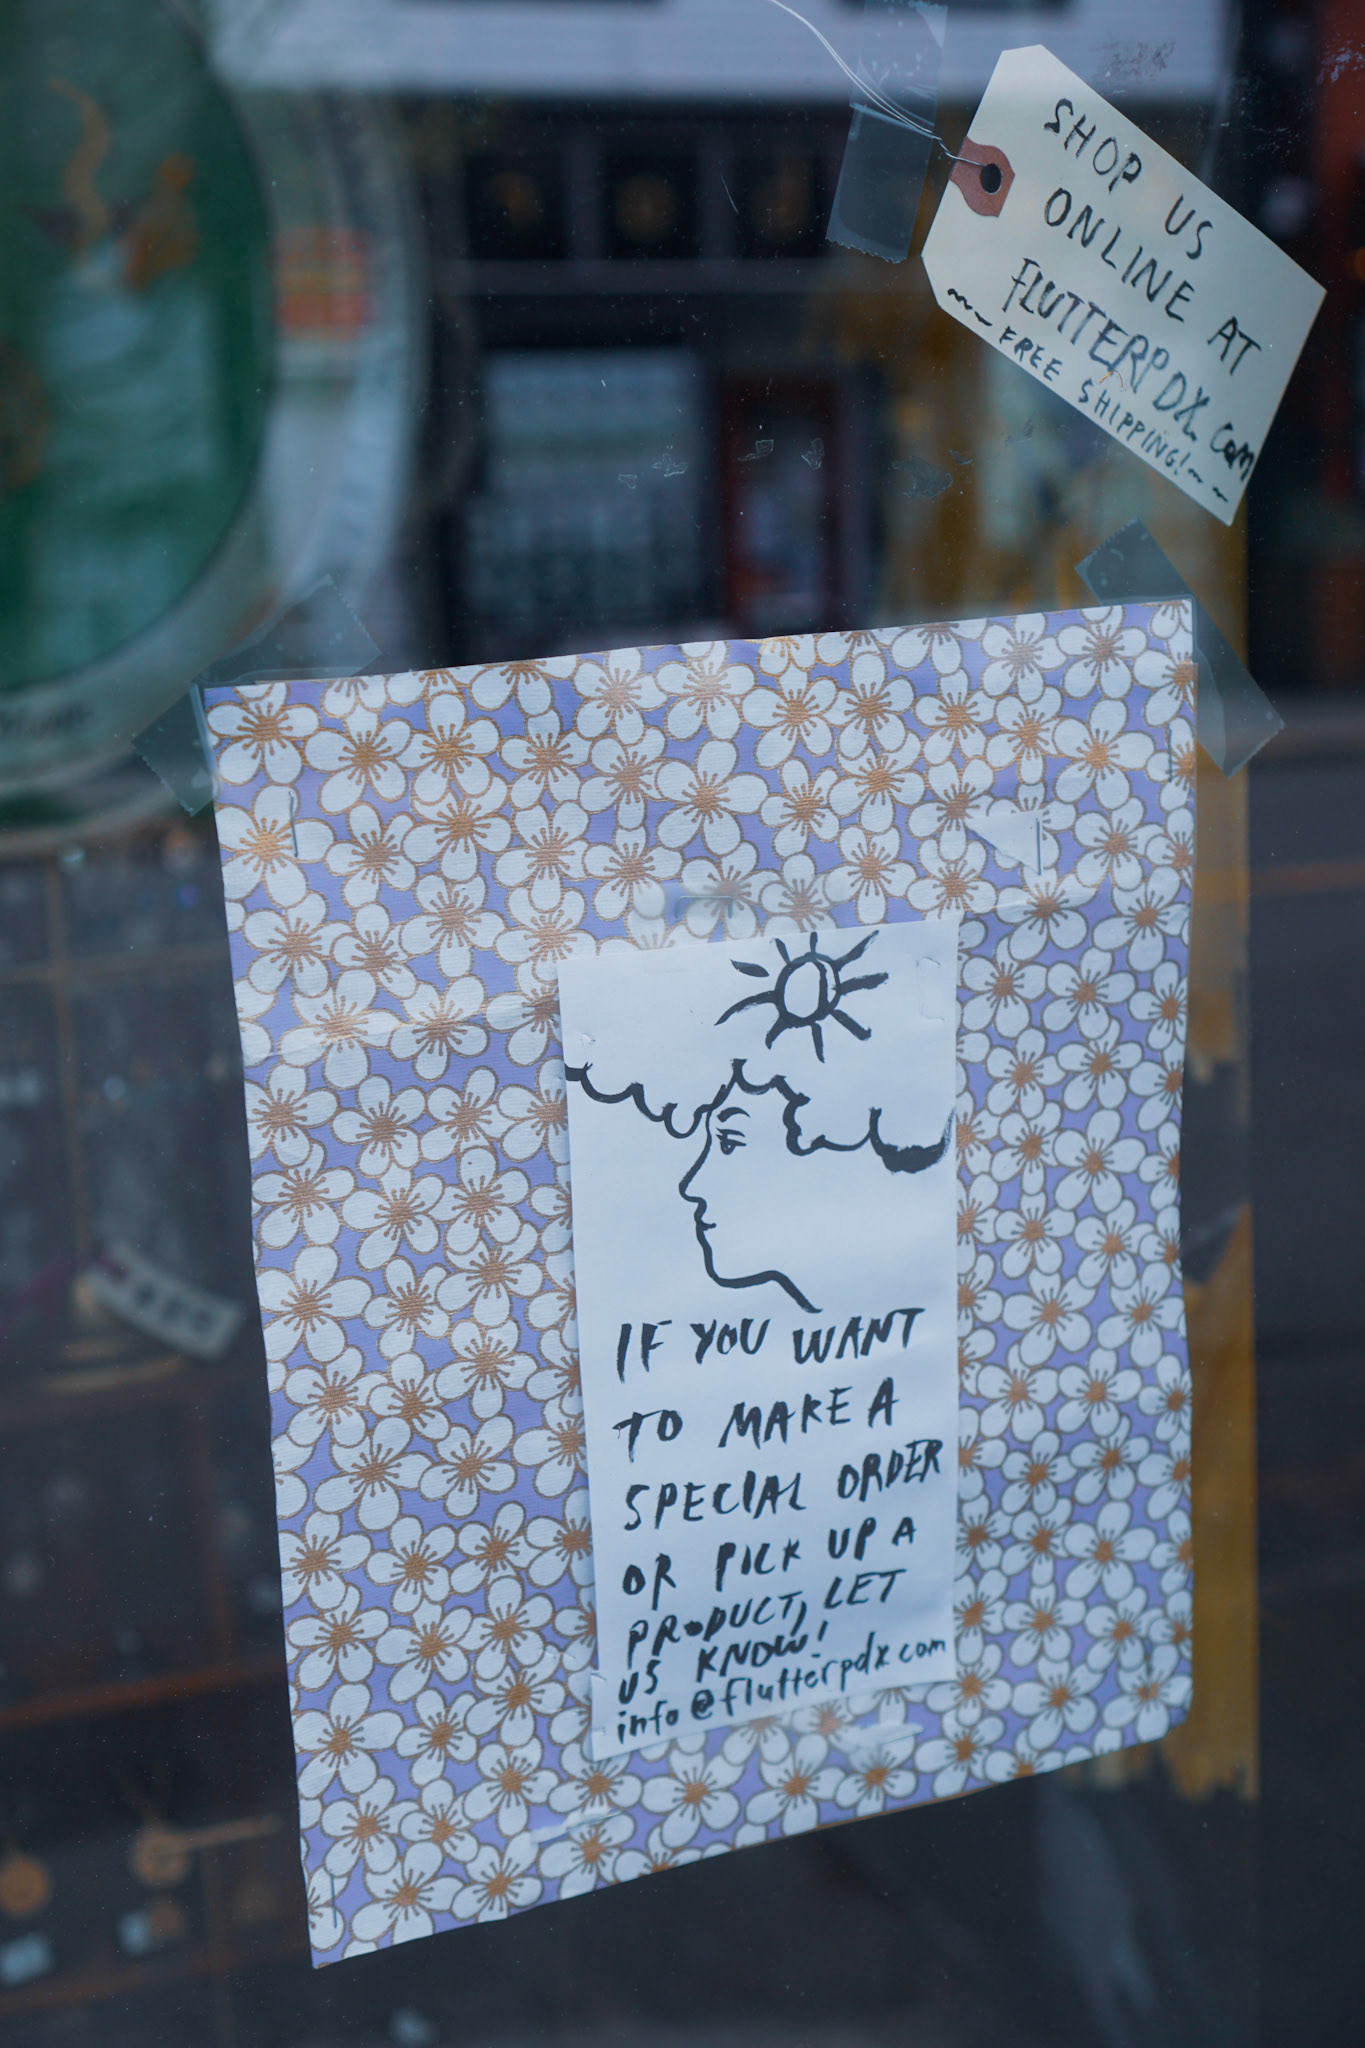 SHOP US
ONLINE AT
FLUTTERPDX.COM
~~~FREE SHIPPING!~~~
IF YOU WANT
TO MAKE A
SPECIAL ORDER
OR PICK UP A
PRODUCT, LET
US KNOW!
info@flutterpdx.com